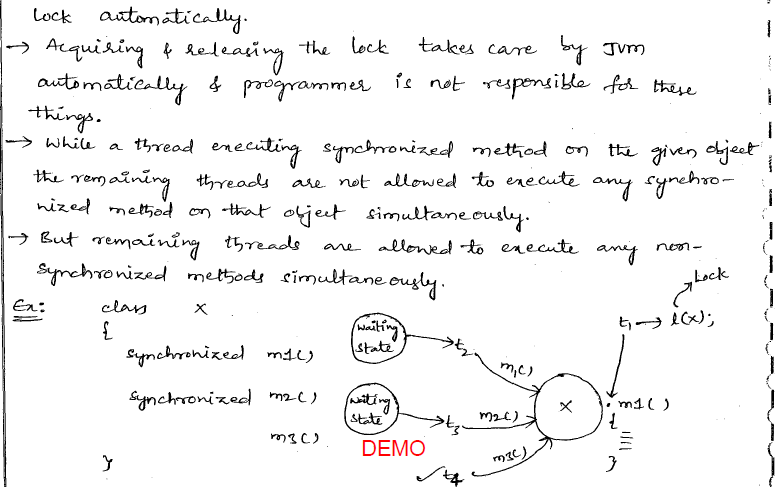 Lock automatically.
→ Acquiring & releasing the lock takes care by JVM
automatically & programmer is not responsible for these
things.
→ While a thread executing synchronized method on the given object
the remaining threads are not allowed to execute any synchro-
nized method on that object simultaneously.
→ But remaining threads are allowed to execute any non-
synchronized methods simultaneously.
Lock
Ex: class X
t1 → l(x);
{
Waiting state
t2
synchronized m1()
m1()
synchronized m2()
Waiting state
t3
m2()
X
m1()
{
m3()
DEMO
m3()
}
t4
}